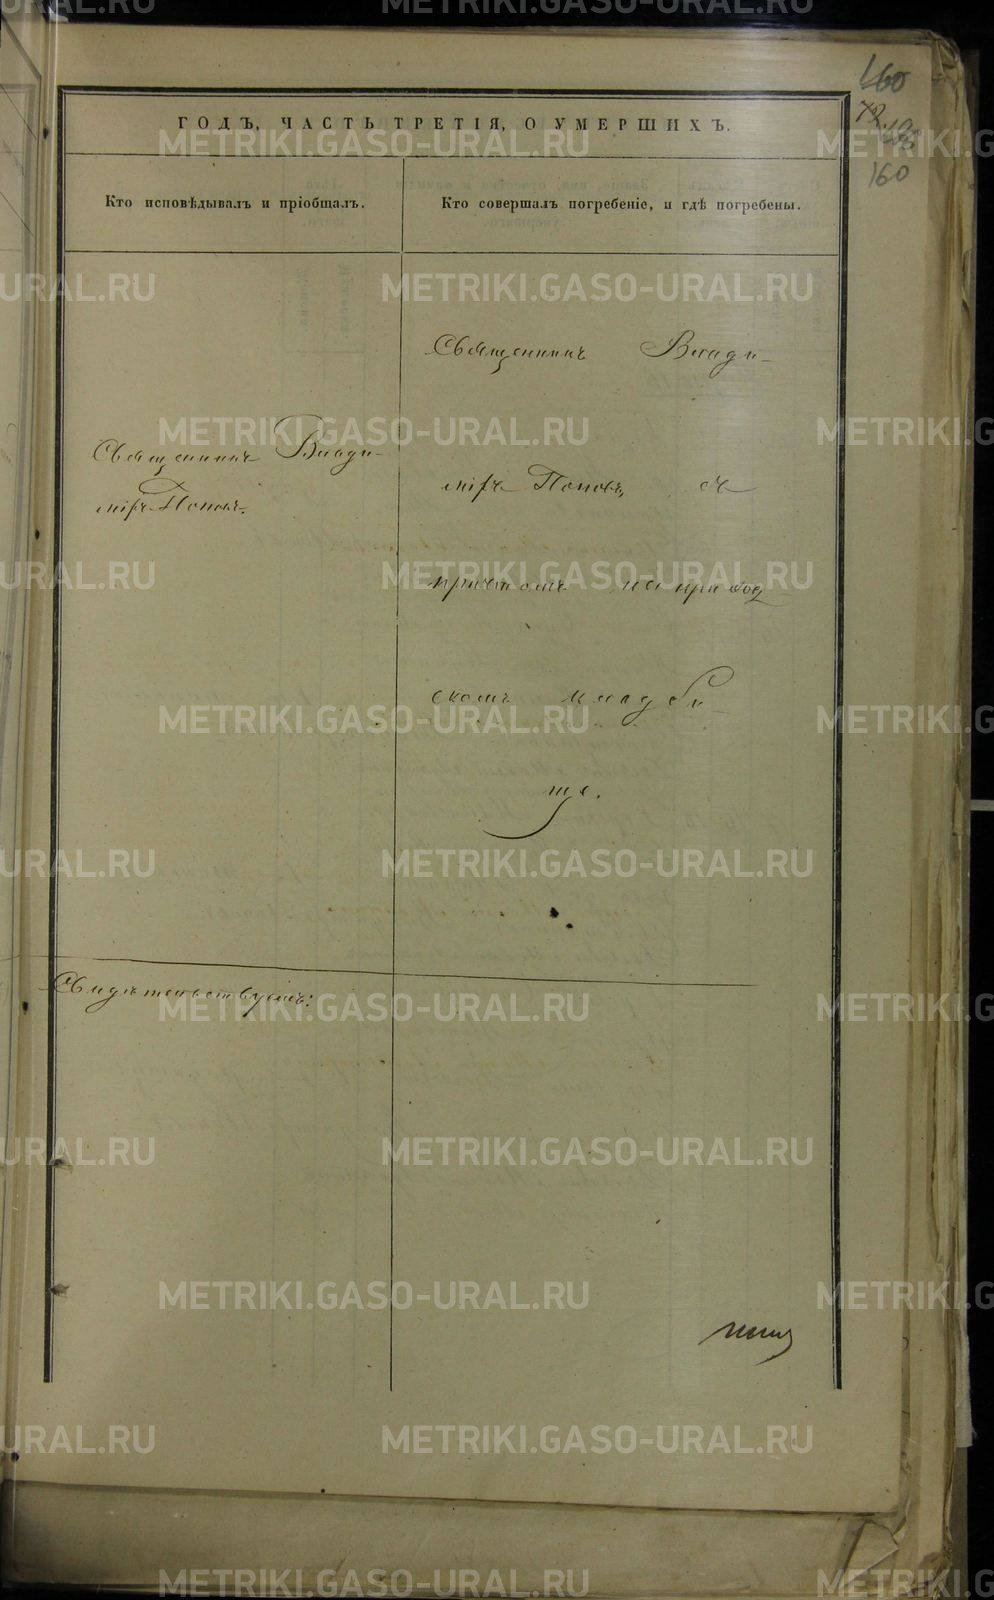 160
160
ГОДЪ, ЧАСТЬ ТРЕТІЯ, О УМЕРШИХЪ.
Кто исповѣдывалъ и пріобщалъ.
Кто совершалъ погребеніе, и гдѣ погребены.
Священникъ Влади-
міръ Поповъ.
Священникъ Влади-
міръ Поповъ, съ
причтомъ на приход
скомъ кладби
ще.
Свидѣтельствуемъ:
METRIKI.GASO-URAL.RU